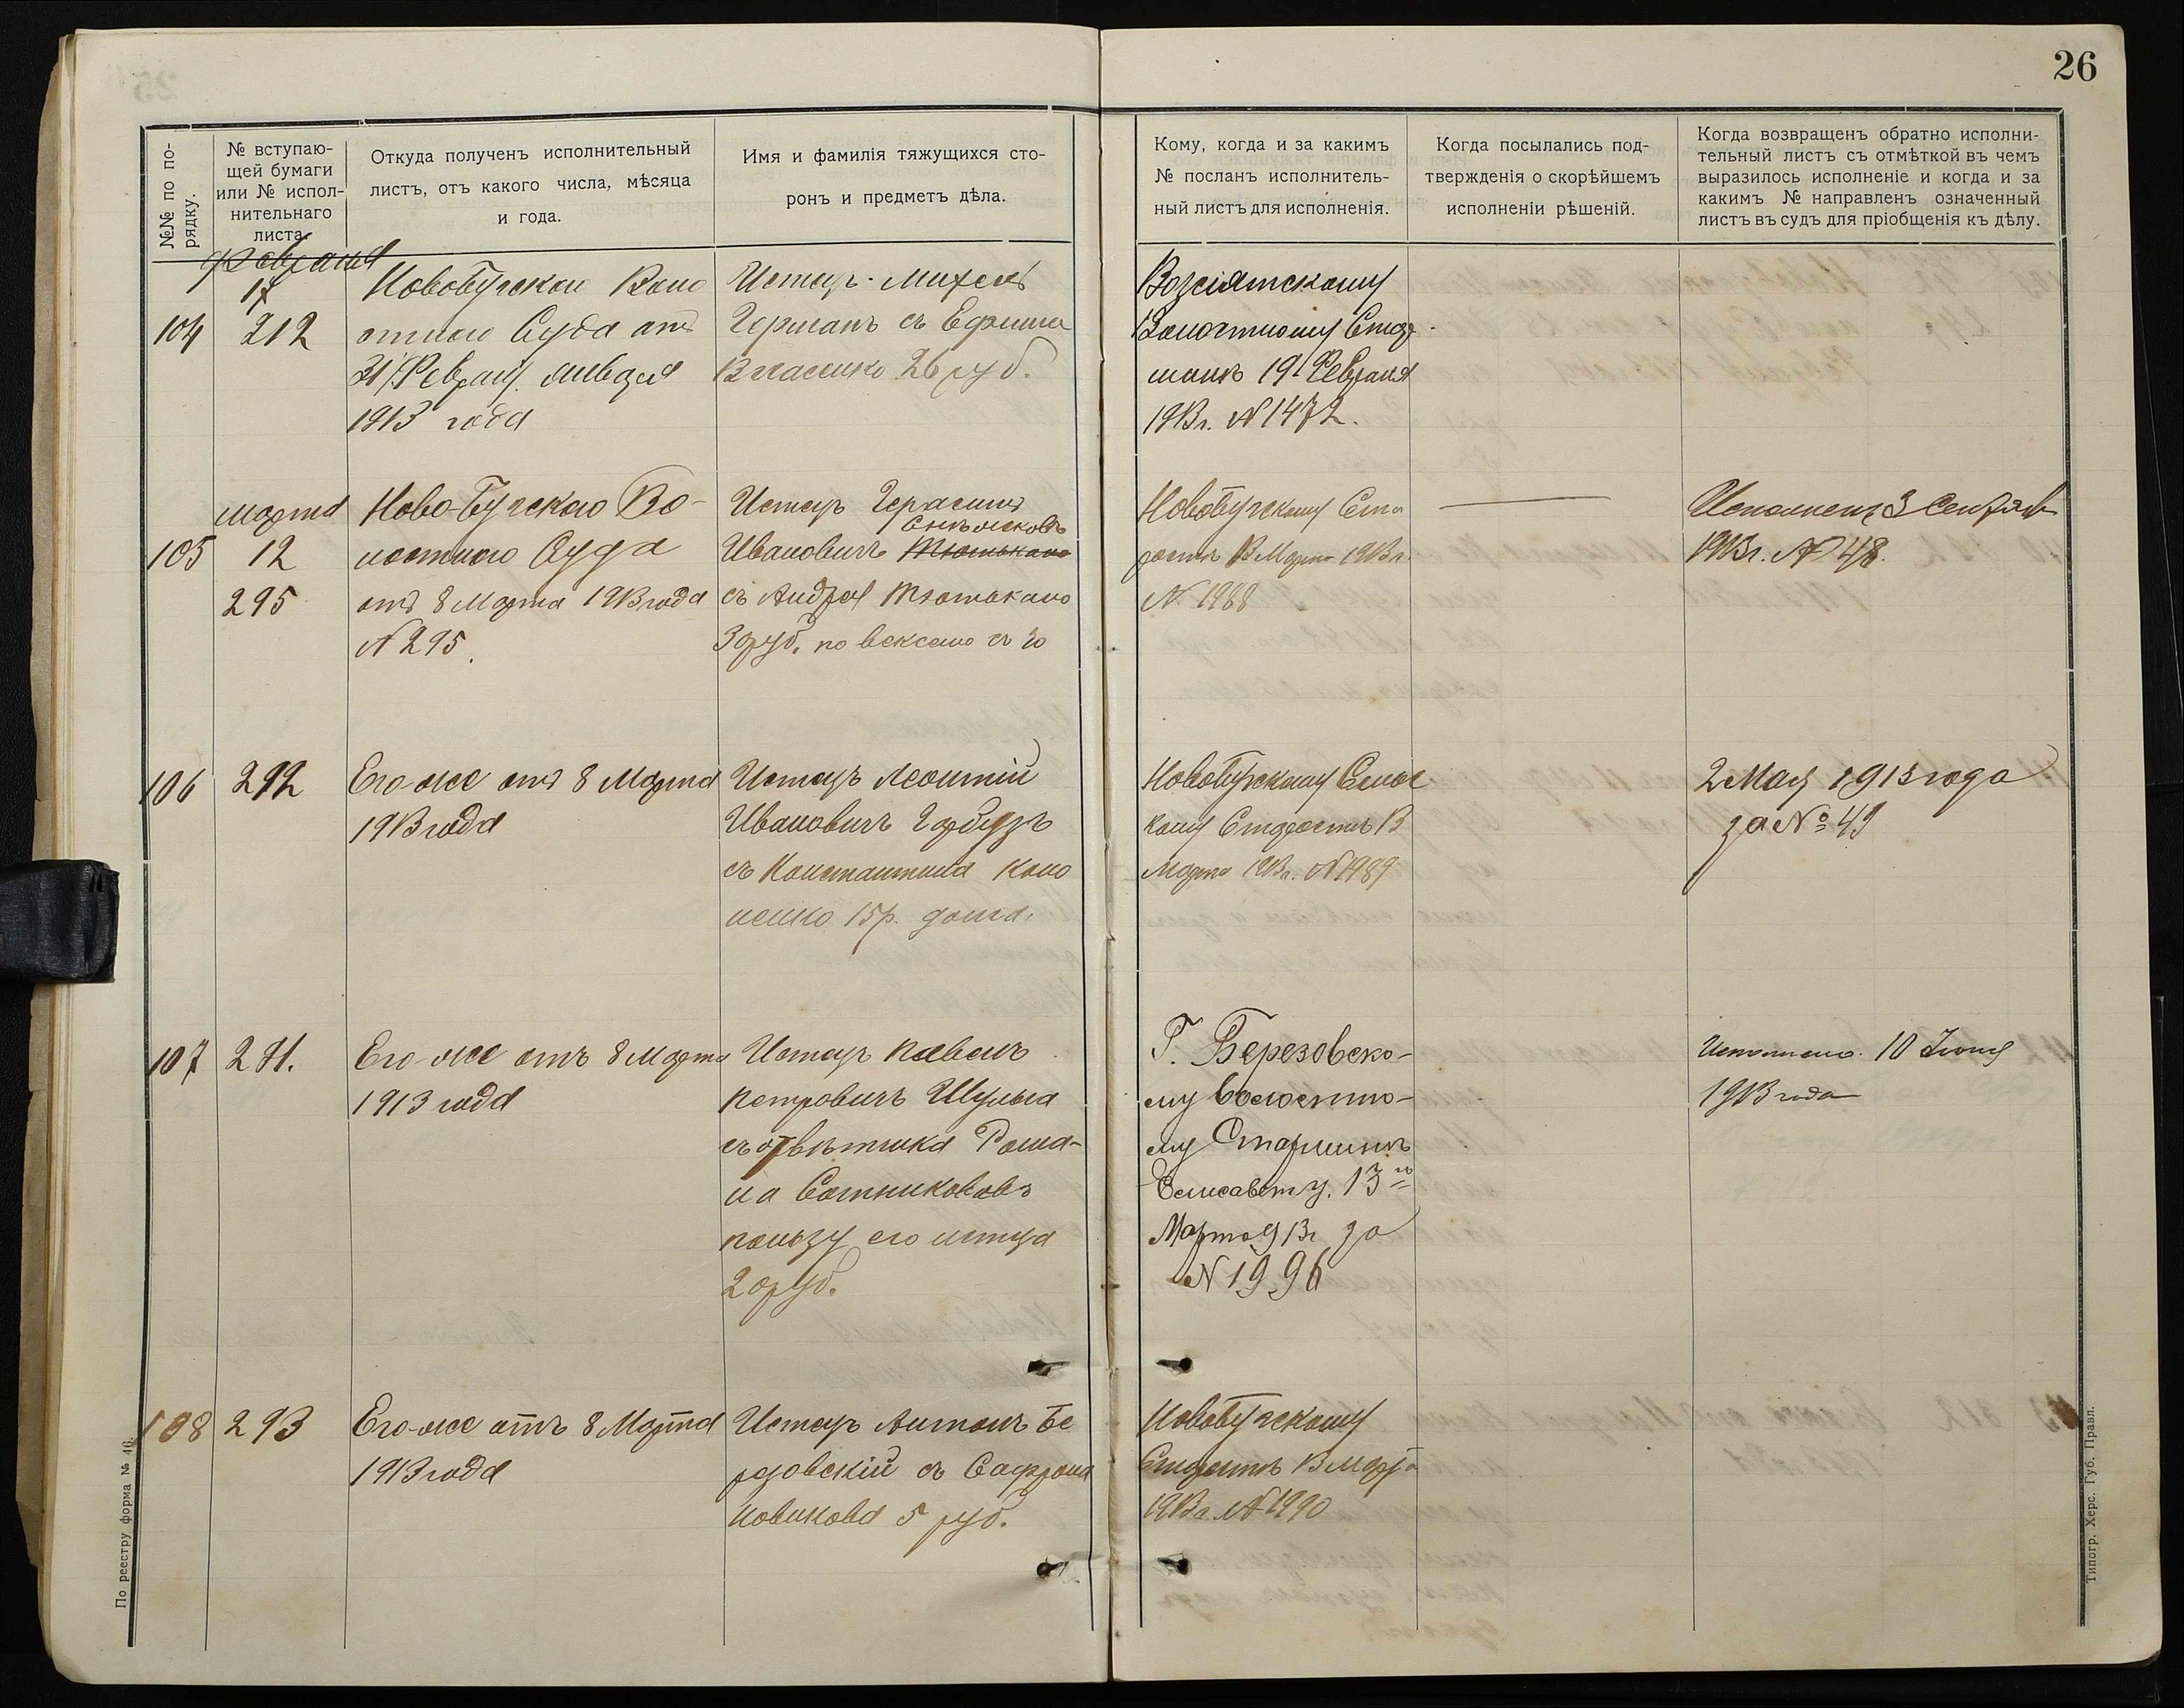 26
№№ по по-
рядку.
№ вступаю-
щей бумаги
или № испол-
нительнаго
листа.
Откуда полученъ исполнительный
листъ, отъ какого числа, мѣсяца
и года.
Имя и фамилія тяжущихся сто-
ронъ и предметъ дѣла.
Кому, когда и за какимъ
№ посланъ исполнитель-
ный листъ для исполненія.
Когда посылались под-
твержденія о скорѣйшемъ
исполненіи рѣшеній.
Когда возвращенъ обратно исполни-
тельный листъ съ отмѣткой въ чемъ
выразилось исполненіе и когда и за
какимъ № направленъ означенный
листъ въ судъ для пріобщенія къ дѣлу.
февраля
17
104
212
Новобугскаго Воло
стного Суда отъ
1913 года
Истецъ Михель
Германъ съ Ефима
Власенко 26 руб.
Возсіятскому
Волостному Стар
шинѣ 19 Февраля
1913 г. N 1472.
марта
105
12
295
Ново-Бугскаго Во-
лостного Суда
отъ 8 Марта 1913 года
N 295.
Истецъ Герасимъ
Ивановичъ
съ Андрея Тютюкало
30 руб. по векселю съ %
Новобугскому Ста
ростѣ 13 Марта 1913 г.
N 1988
Исполненъ 3 Сентяб
1913 г. N 48.
106
292
Его-же отъ 8 Марта
1913 года
Истецъ Леонтій
Ивановичъ Гарбузъ
съ Константина Коно
ненко 15 р. долга.
Новобугскому Сельс
кому Старостѣ 13
Марта 1913 г. N 1989
2 Мая 1913 года
за № 49
107
291.
Его-же отъ 8 Марта
1913 года
Истецъ Павелъ
Петровичъ Шульга
съ отвѣтчика Рома-
на Сотникова въ
пользу его истца
20 руб.
Г. Березовско-
му Волостно-
му Старшинѣ
Елисаветг. 13го
Марта 913 г за
N 1996
Исполнено. 10 Іюня
1913 года
108
293
Его-же отъ 8 Марта
1913 года
Истецъ Антонъ Бе
резовскій съ Сафрона
Новикова 5 руб.
Новобугскому
Старостѣ 13 Марта
1913 г. N 1990
По реестру форма № 46.
Типогр. Херс. Губ. Правл.